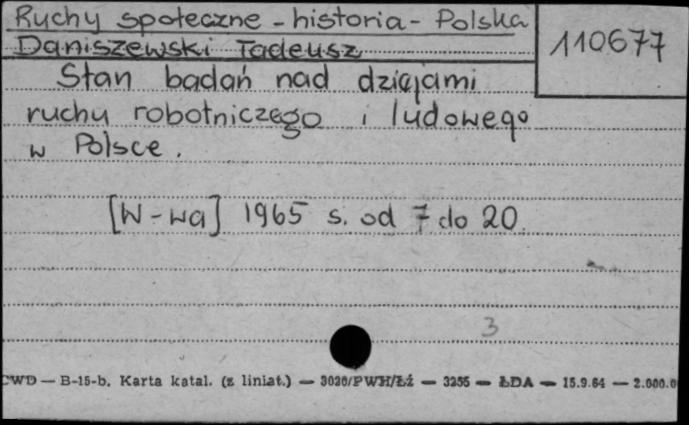 Ruchy społeczne - historia - Polska
110677
Daniszewski Tadeusz
Stan badań nad dziejami
ruchu robotniczego i ludowego
w Polsce.
[W-wa] 1965 s. od 7 do 20.
3
CWD — B-15-b. Karta katal. (z liniat.) — 3020/PWH/Łź — 3255 — ŁDA — 15.9.64 — 2.000.0